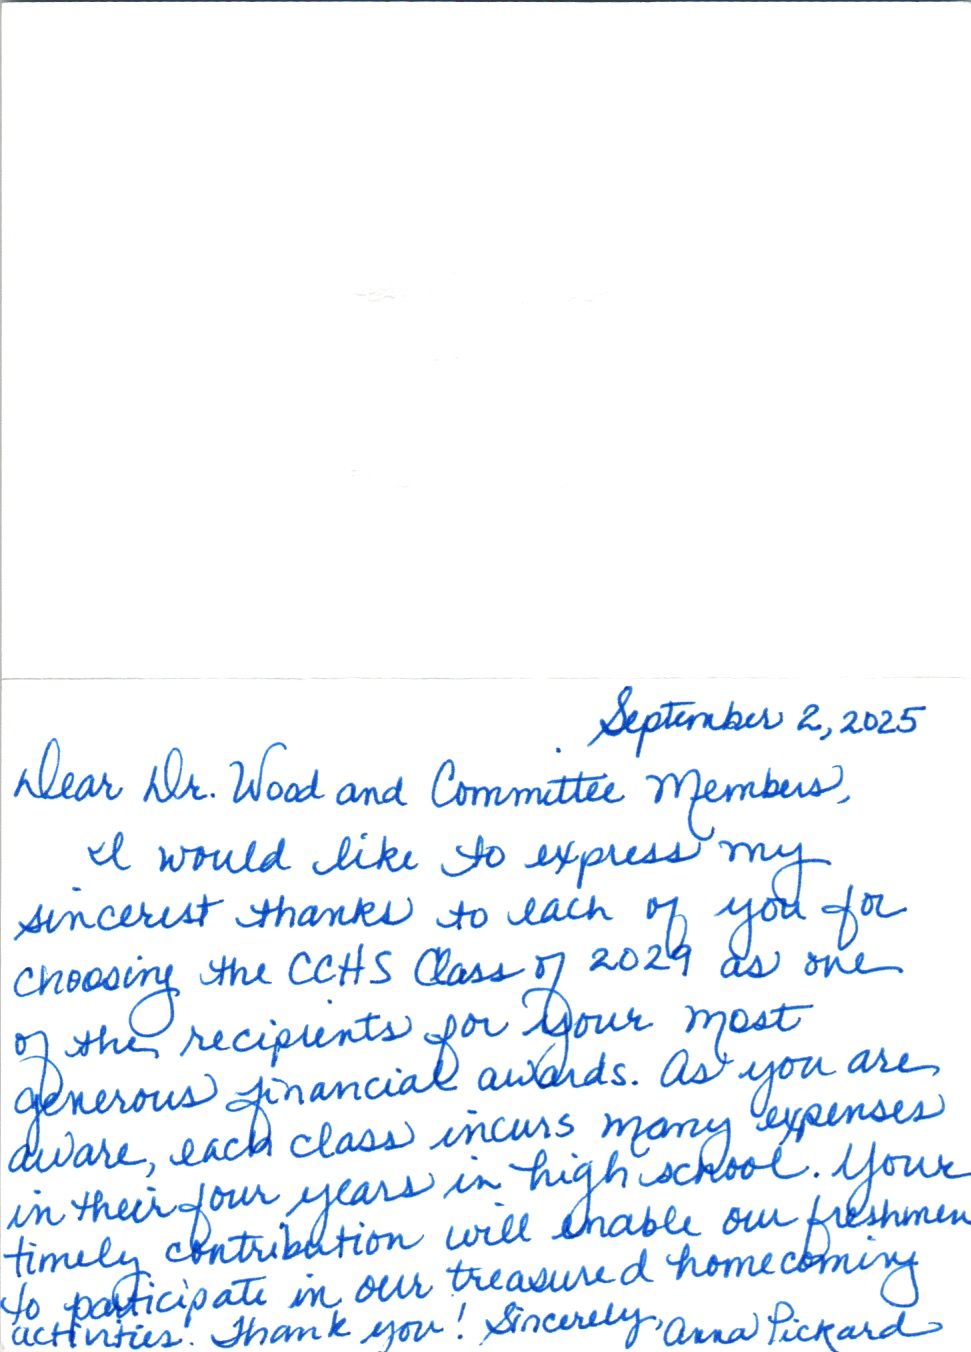 September 2, 2025
Dear Dr. Wood and Committee Members,
I would like to express my
sincerest thanks to each of you for
choosing the CCHS Class of 2029 as one
of the recipients for your most
generous financial awards. As you are
aware, each class incurs many expenses
in their four years in high school. Your
timely contribution will enable our freshmen
to participate in our treasured homecoming
activities. Thank you! Sincerely, Anna Pickard